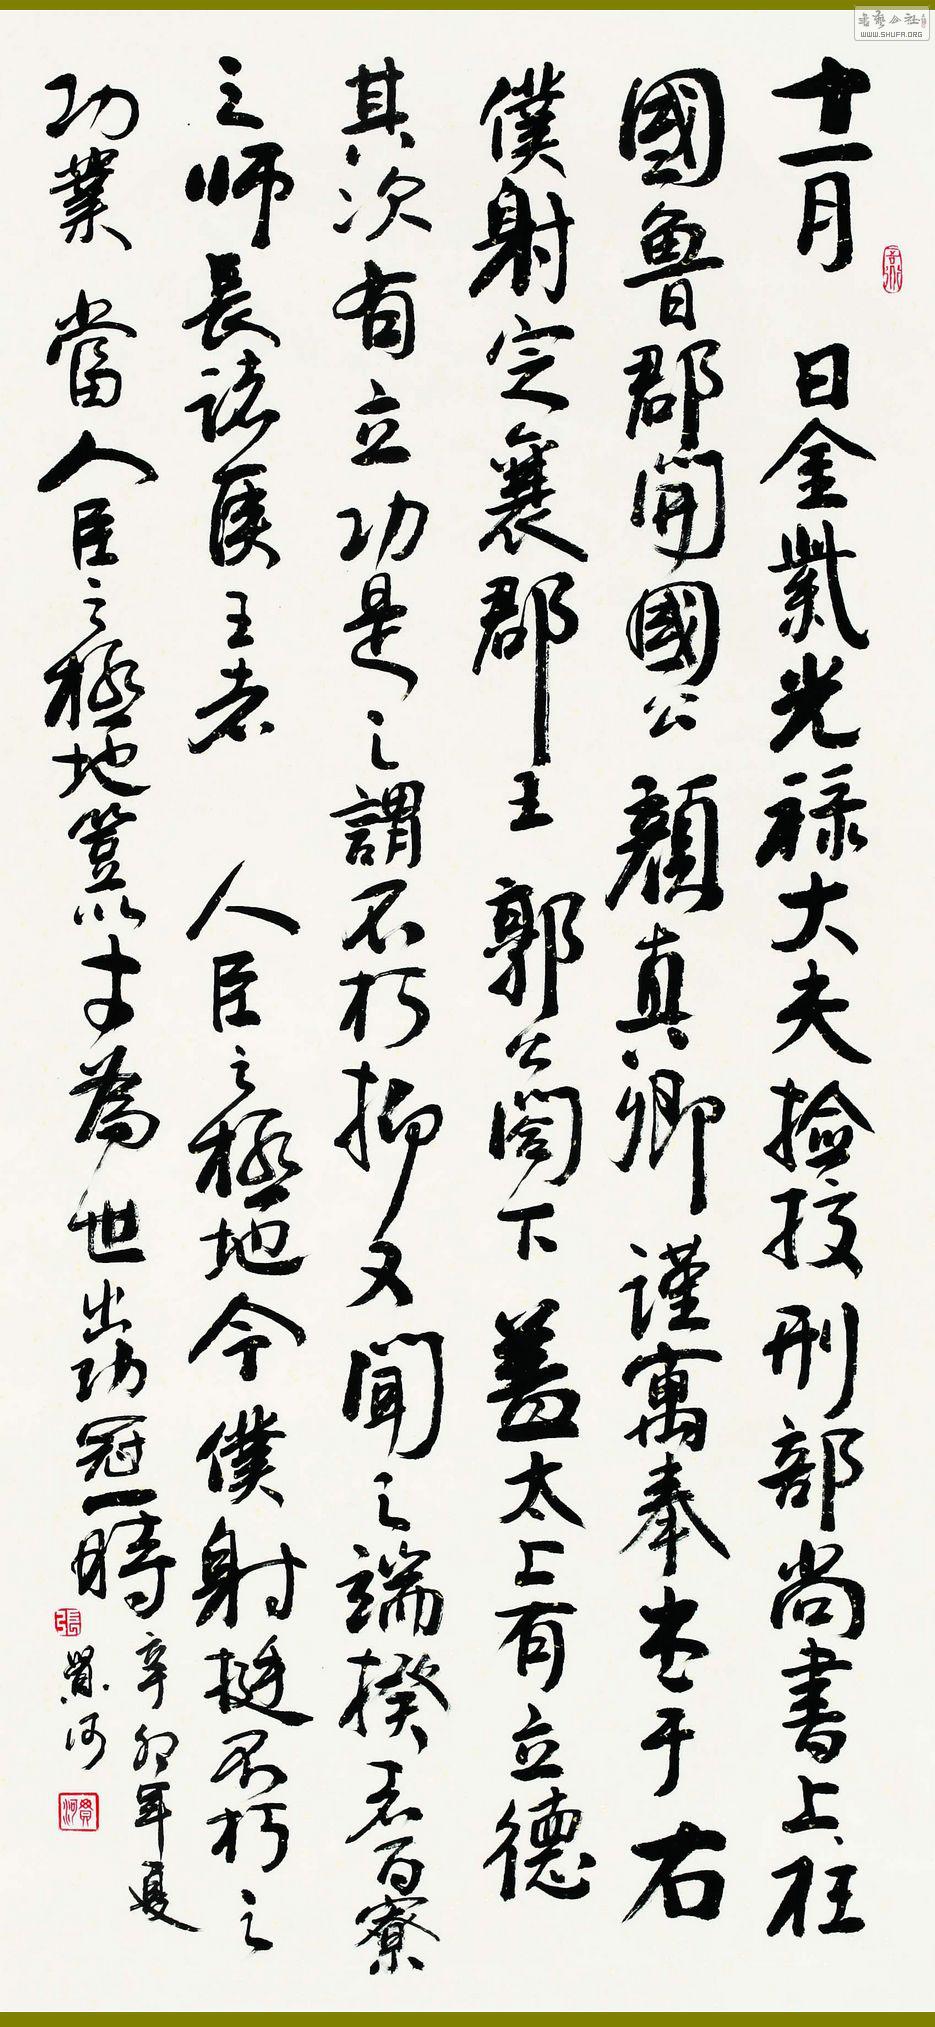 十一月 日金紫光禄大夫撿挍刑部尚書上柱
國魯郡開國公 顏真卿謹寓奉书于右
僕射定襄郡王 郭公閤下盖太上有立德
其次有立功是之謂不朽抑又聞之端揆者百寮
之师長諸侯王者 人臣之極地今僕射挺不朽之
功業 當人臣之極地豈以才為世出功冠一時
辛卯年夏
賢河
書藝公社
WWW.SHUFA.ORG